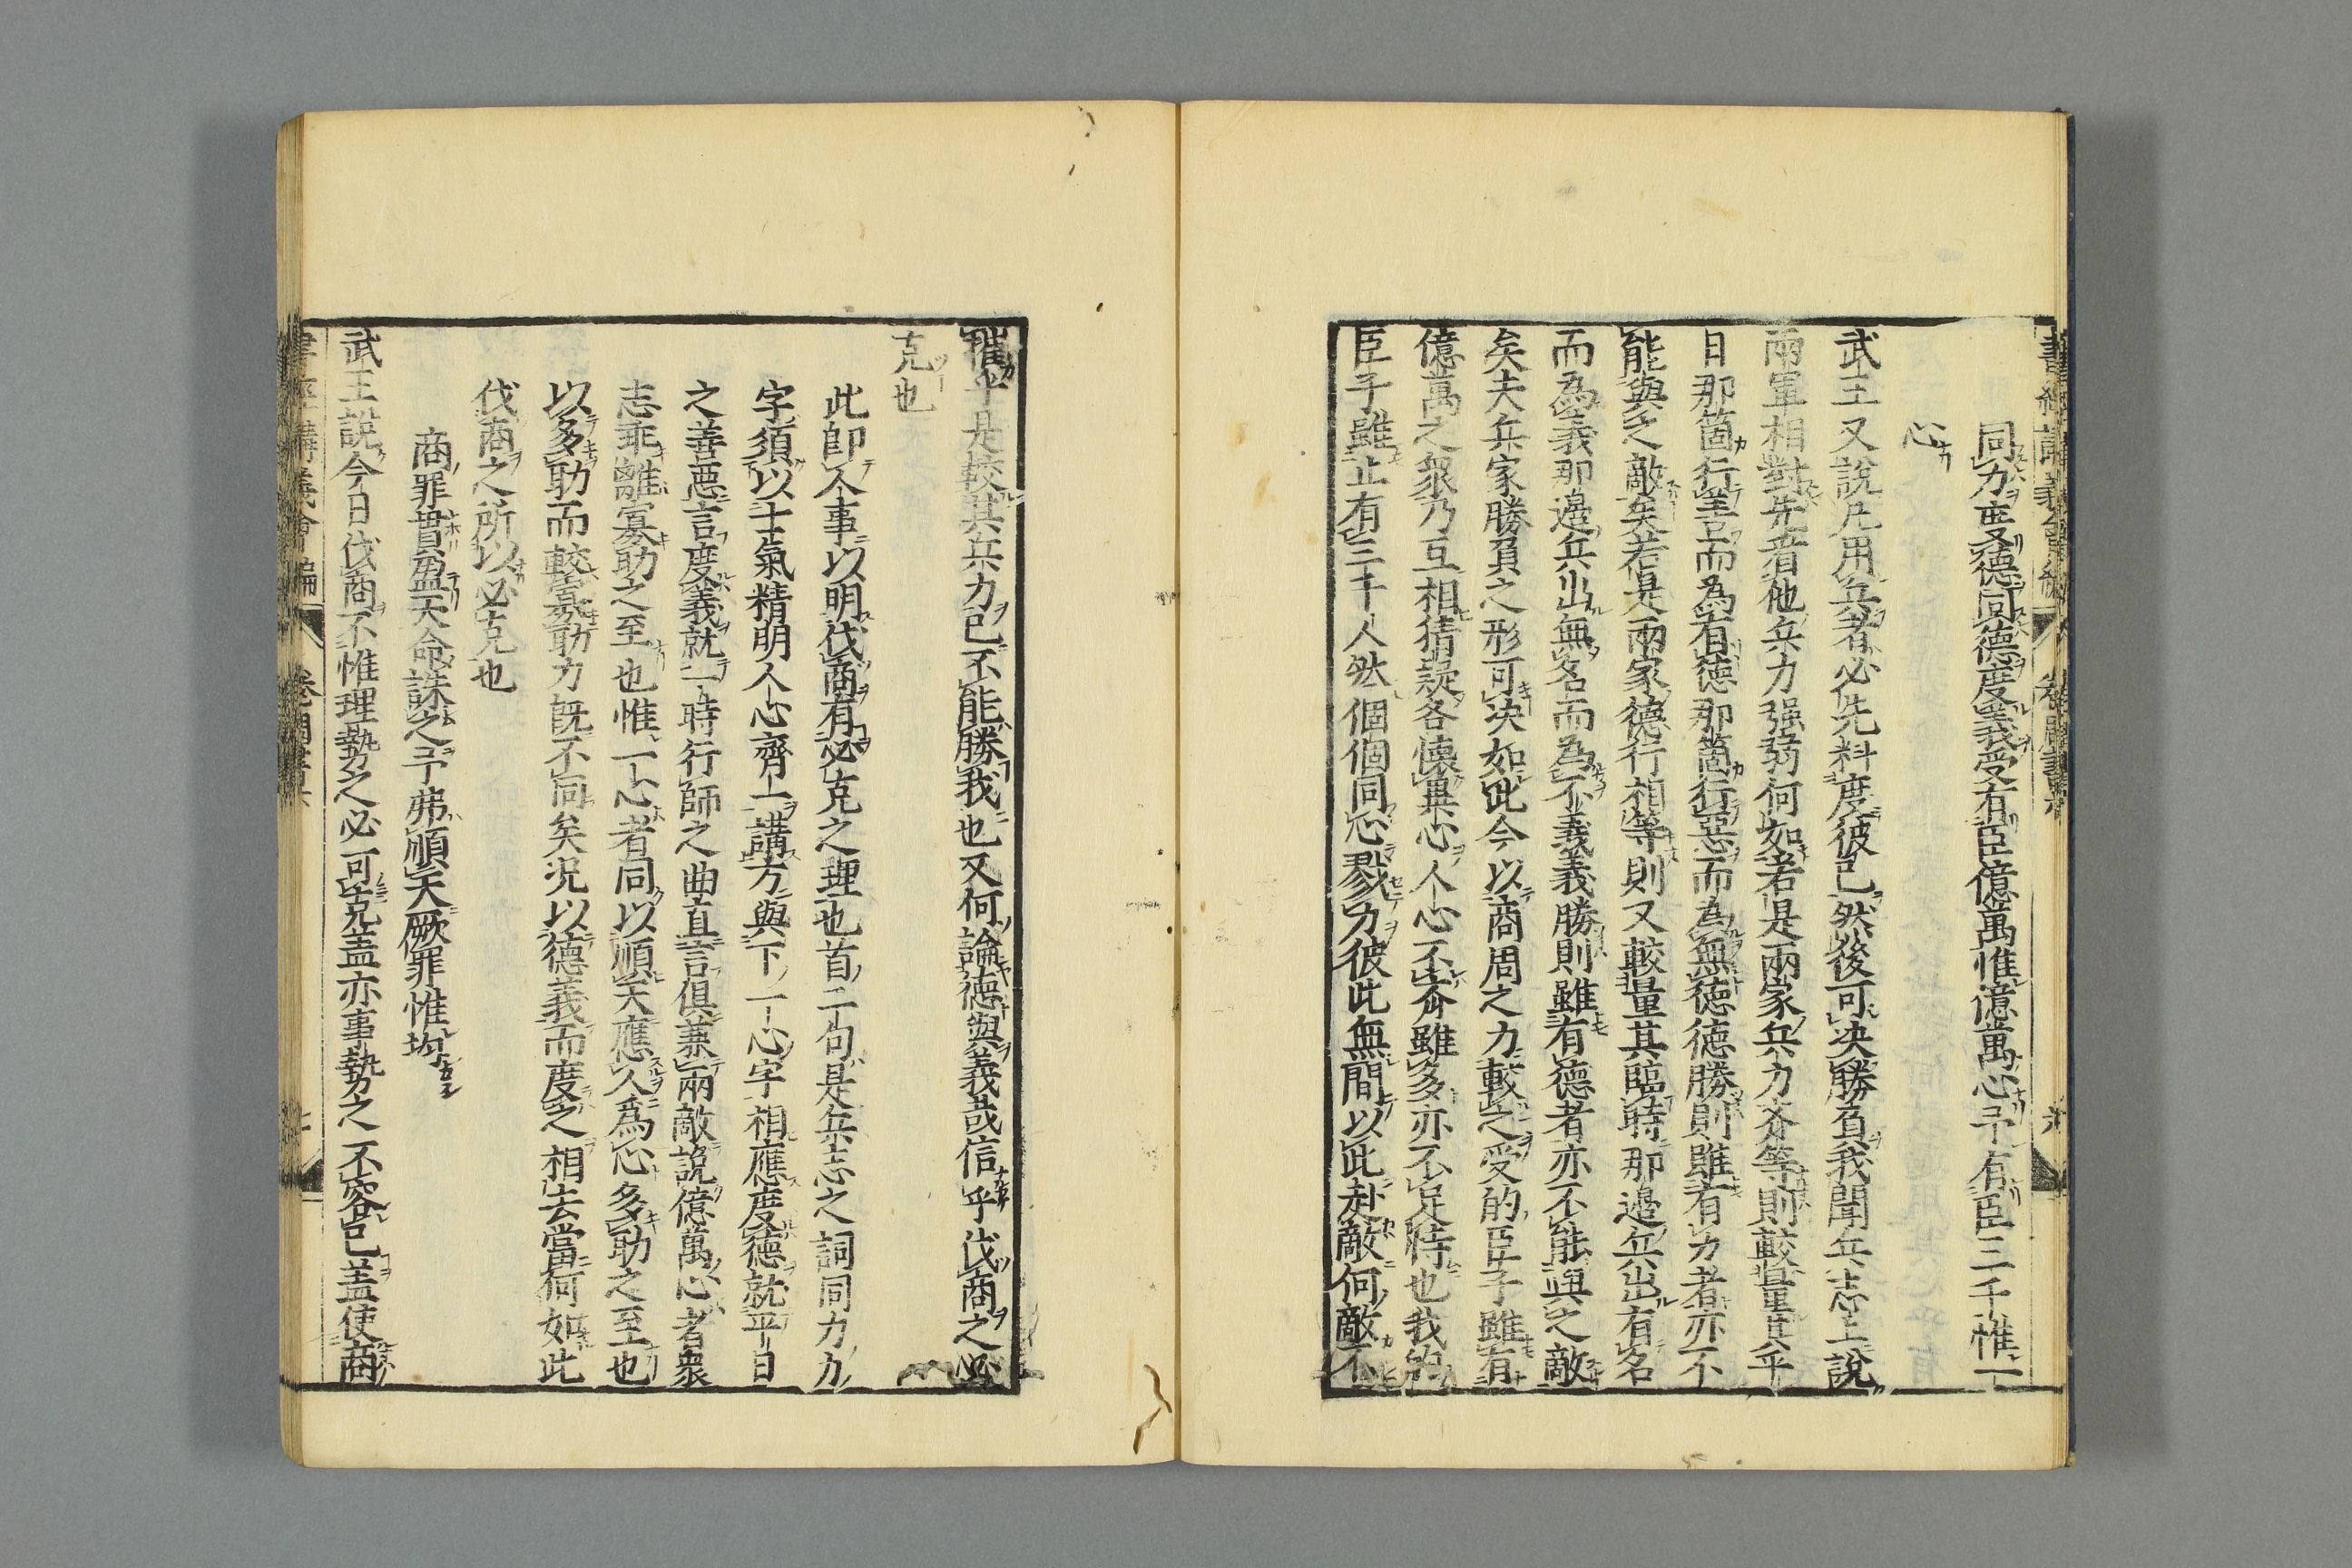 同力度德同德度義受有臣億萬惟億萬心予有臣三千惟一
心
武王又說凡用兵者必先料度彼己然後可决勝負我聞兵志上說
兩軍相對先看他兵力强弱何如若是兩家兵力齐等則較量其平
日那箇行善而為有德那箇行惡而為無德德勝則雖有力者亦不
能與之敵矣若是兩家德行相等則又較量其臨時那邉兵出有名
而為義那邉兵出無名而為不義義勝則雖有德者亦不能與之敵
矣夫兵家勝負之形可决如此今以商周之力較之受的臣子雖有
億萬之衆乃互相猜疑各懷異心人心不齐雖多亦不足恃也我的
臣子雖止有三千人然個個同心戮力彼此無間以此赴敵何敵不
摧乎是較其兵力已不能勝我也又何論德與義哉信乎伐商之必
克也
此即人事以明伐商有必克之理也首二句是兵志之詞同力力
字須以士氣精明人心齊上講方與下一心字相應度德就平日
之善惡言度義就一時行師之曲直言俱兼兩敵說億萬心者衆
志乖離寡助之至也惟一心者同以順天應人爲心多助之至也
以多助而較寡助力既不同矣况以德義而度之相去當何如此
伐商之所以必克也
商罪貫盈天命誅之予弗順天厥罪惟均
武王說今日伐商不惟理勢之必可克盖亦事勢之不容已盖使商